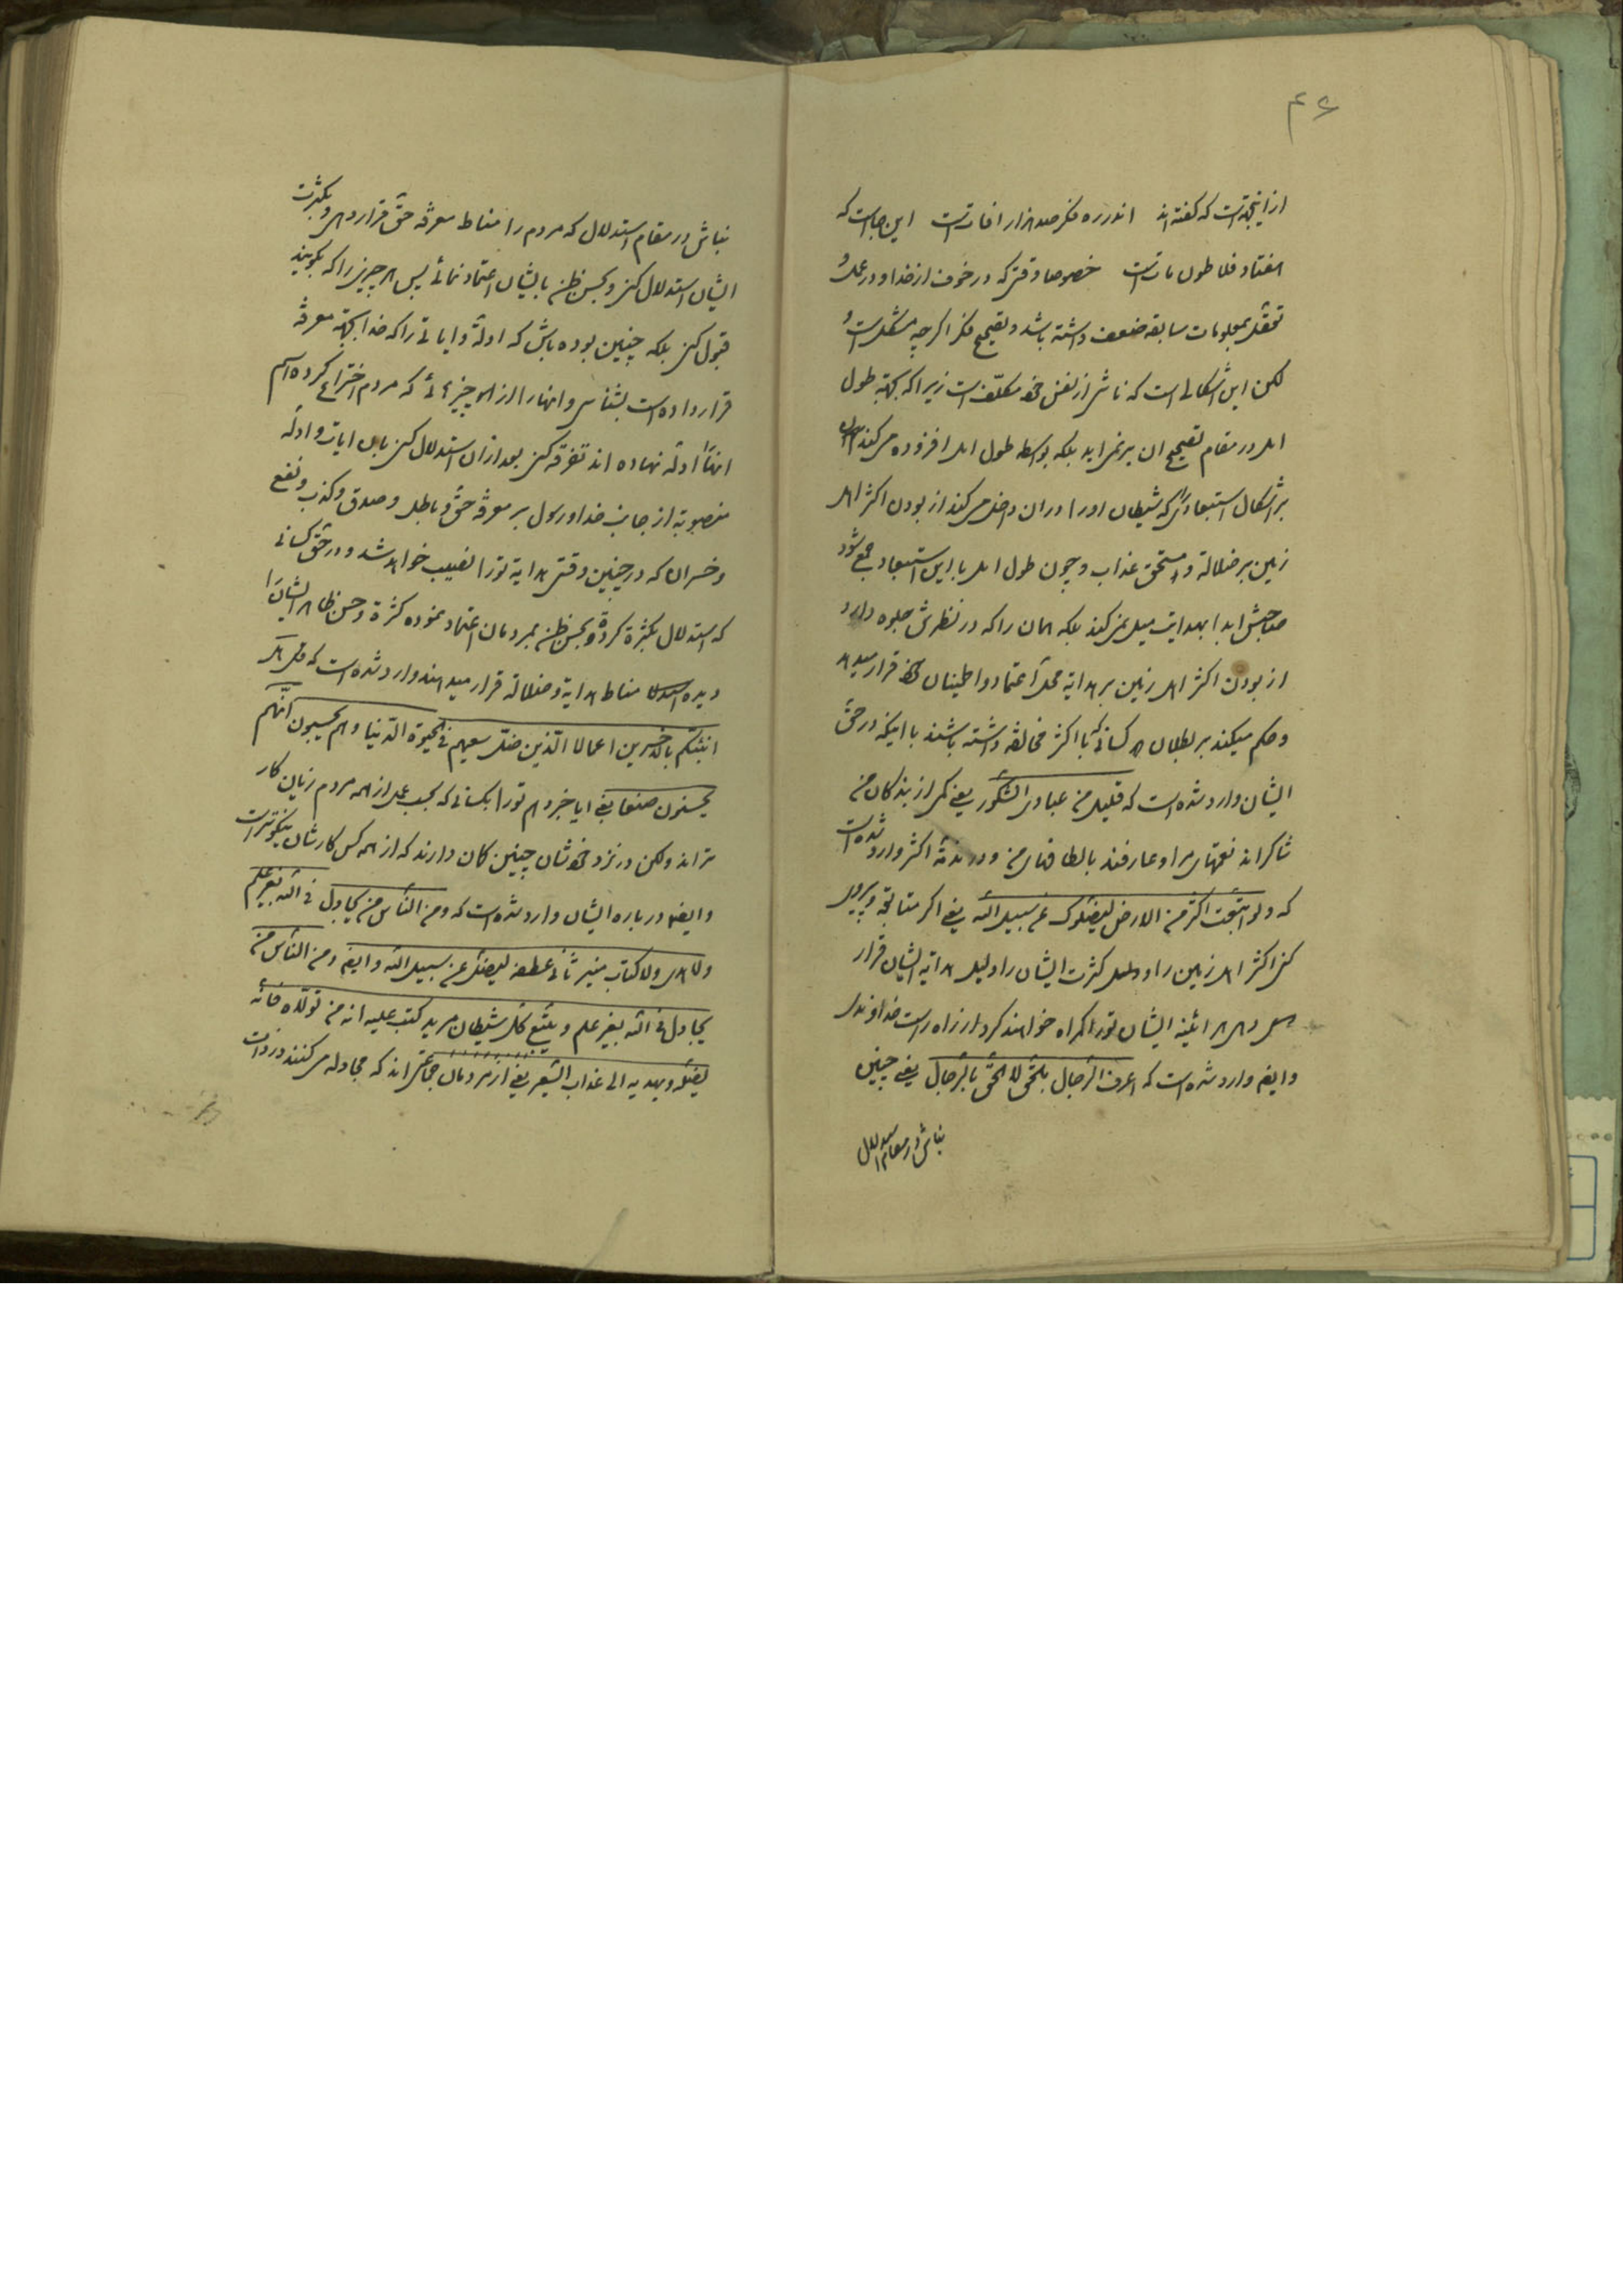 ۴۶
از اینجهة است که گفته اند اندر ره فکر صد هزار افات است این جا است که
هفتاد فلاطون مات است خصوصا وقتی که در خوف از خدا و در عمل و
تعقل بمعلومات سابقه ضعف داشته باشد و تصحیح فکر اگر چه مشکل است و
لکن این اشکالی است که ناشی از نفس خود مکلف است زیرا که بجهة طول
امل در مقام تصحیح ان بر نمی اید بلکه بواسطه طول امل افزوده میکند
بر اشکال استبعادی که شیطان او را در ان داخل میکند از بودن اکثر اهل
زمین بر ضلالة و مستحق عذاب و چون طول امل با این استبعاد جمع شود
صاحبش ابدا بهدایت میل نمیکند بلکه همان را که در نظرش جلوه دارد
از بودن اکثر اهل زمین بر هدایة محل اعتماد و اطمینان خود قرار میدهد
و حکم میکند بر بطلان هر کسانی که با اکثر مخالفة داشته باشند با اینکه در حق
ایشان وارد شده است که قلیل من عبادی الشکور یعنی کمی از بندکان من
شاکر اند نعمتهای مرا و عارفند بالطافهای من و در مذمة اکثر وارد شده است
که و لو اتبعت اکثر من الارض لیضلوک عن سبیل الله یعنی اکر متابعة و پیروی
کنی اکثر اهل زمین را و کثرت ایشان را دلیل هدایة ایشان قرار
دهی هر اینه ایشان تو را کمراه خواهند کرد از راه راست خداوندی
و ایضا وارد شده است که اعرف الرجال بالحق لا الحق بالرجال یعنی چنین
نباش در مقام استدلال
نباش در مقام استدلال که مردم را مناط معرفة حق قرار دهی و بکثرت
ایشان استدلال کنی و بحسن ظن بایشان اعتماد نمائی پس هر چیزی را که بکویند
قبول کنی بلکه چنین بوده باش که ادلة و ایاتی را که خدا بجهة معرفة
قرار داده است بشناسی و انها را از چیزهائی که مردم اختراع کرده اسم
انها ادله نهاده اند تفرقه کنی بعد از ان استدلال کنی بان ایات و ادله
منصوبة از جانب خدا و رسول بر معرفة حق و باطل و صدق و کذب و نفع
و خسران که در چنین وقتی هدایة تو را نصیب خواهد شد و در حق کسانی
که استدلال بکثرة کرده و بحسن ظن بمردمان اعتماد نموده کثرة و حسن ظاهر ایشان را
دیده مناط هدایة و ضلالة قرار میدهند وارد شده است که قل هل
انبئکم بالاخسرین اعمالا الذین ضل سعیهم فی الحیوة الدنیا و هم یحسبون انهم
یحسنون صنعا یعنی ایا خبر دهم تو را بکسانی که بحسب عمل از همه مردم زیان کار
تر اند و لکن در نزد خودشان چنین کمان دارند که از همه کس کارشان نیکوتر است
و ایضا در باره ایشان وارد شده است که و من الناس من یجادل فی الله بغیر علم
و لا هدی و لا کتاب منیر ثانی عطفه لیضل عن سبیل الله و ایضا و من الناس من
یجادل فی الله بغیر علم و یتبع کل شیطان مرید کتب علیه انه من تولاه فانه
یضله و یهدیه الی عذاب السعیر یعنی از مردمان جماعتی اند که مجادله میکنند در ذات